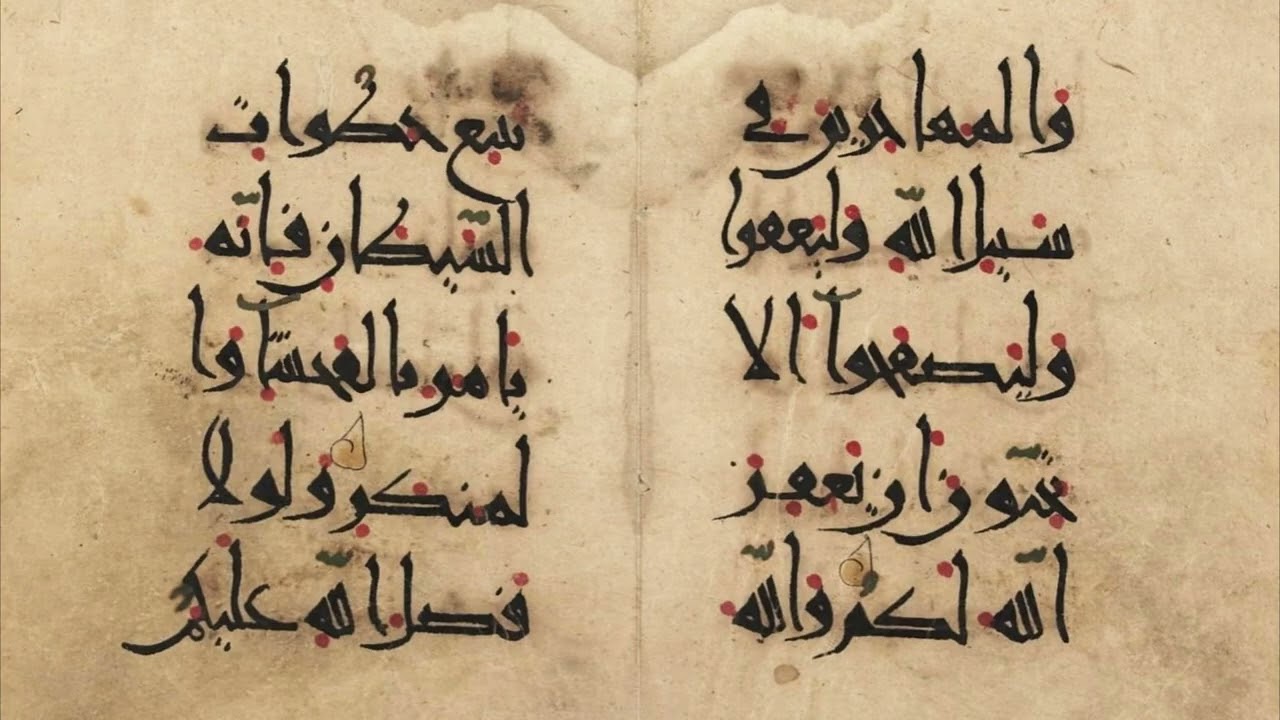 والمهاجرين في
سبيل الله وليعفوا
وليصفحوا ألا
تحبّون أن يغفر
الله لكم والله
يتبع خطوات
الشّيطان فإنّه
يأمر بالفحشآء وا
لمنكر ولولا
فضل الله عليكم